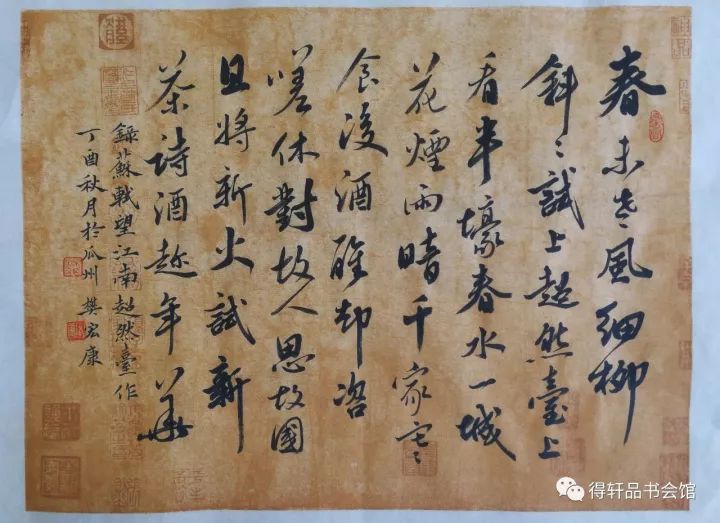 春未老風細柳
斜〻試上超然臺上
看半壕春水一城
花煙雨暗千家寒
食後酒醒却咨
嗟休對故人思故國
且將新火試新
茶詩酒趁年華
錄蘇軾望江南超然臺作
丁酉秋月於瓜州 樊宏康
得轩品书会馆